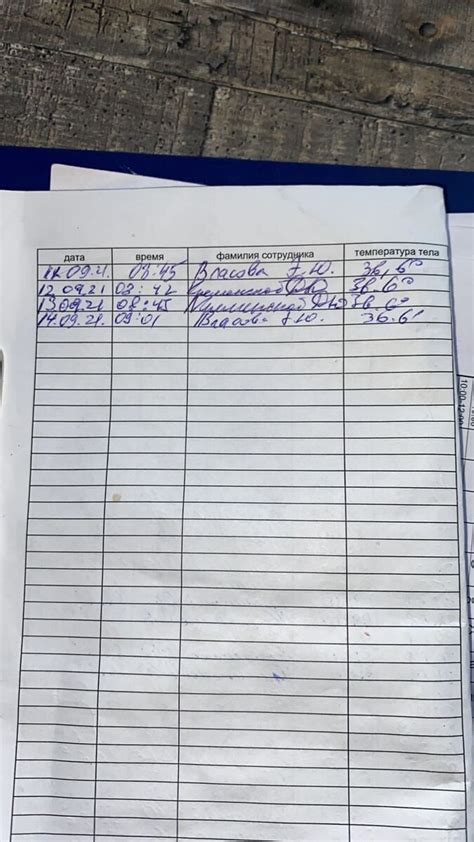 дата время фамилия сотрудника температура тела
11.09.21. 08:45 Власова Э.Ю. 36,6°
12.09.21 08:42 36.6°
13.09.21 08:45 36.6°
14.09.21. 09:01 Власова Э.Ю. 36.6°
10:00-12:00